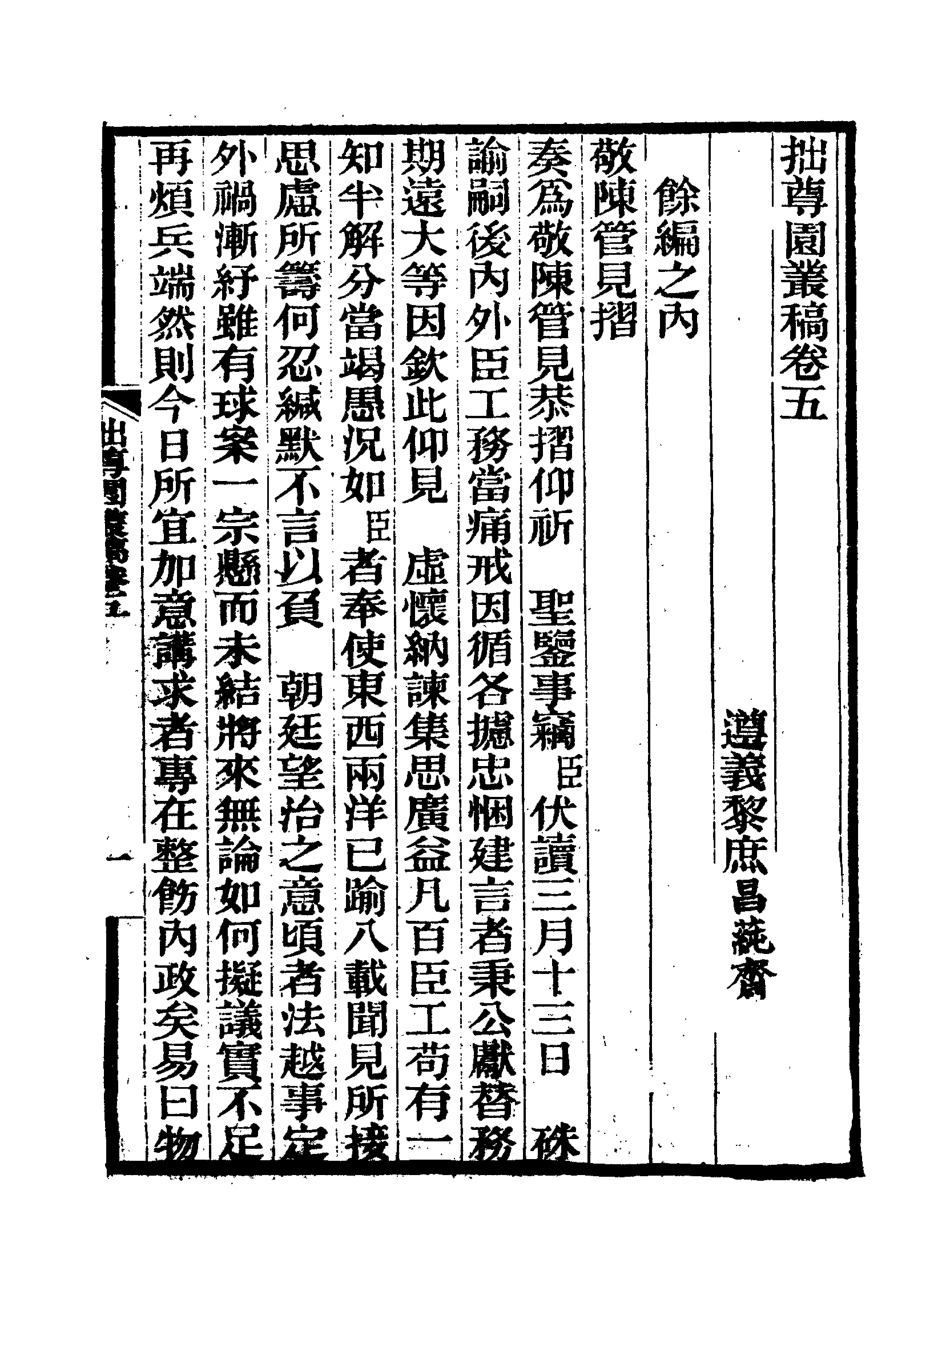 拙尊園叢稿卷五
遵義黎庶昌蒓齋
餘編之內
敬陳管見摺
奏爲敬陳管見恭摺仰祈　聖鑒事竊臣伏讀三月十三日　硃
諭嗣後內外臣工務當痛戒因循各攄忠悃建言者秉公獻替務
期遠大等因欽此仰見　虛懷納諫集思廣益凡百臣工苟有一
知半解分當竭愚況如臣者奉使東西兩洋已踰八載聞見所接
思慮所籌何忍緘默不言以負　朝廷望治之意頃者法越事定
外禍漸紓雖有球案一宗懸而未結將來無論如何擬議實不足
再煩兵端然則今日所宜加意講求者專在整飭內政矣易曰物
拙尊園叢稿卷五
一